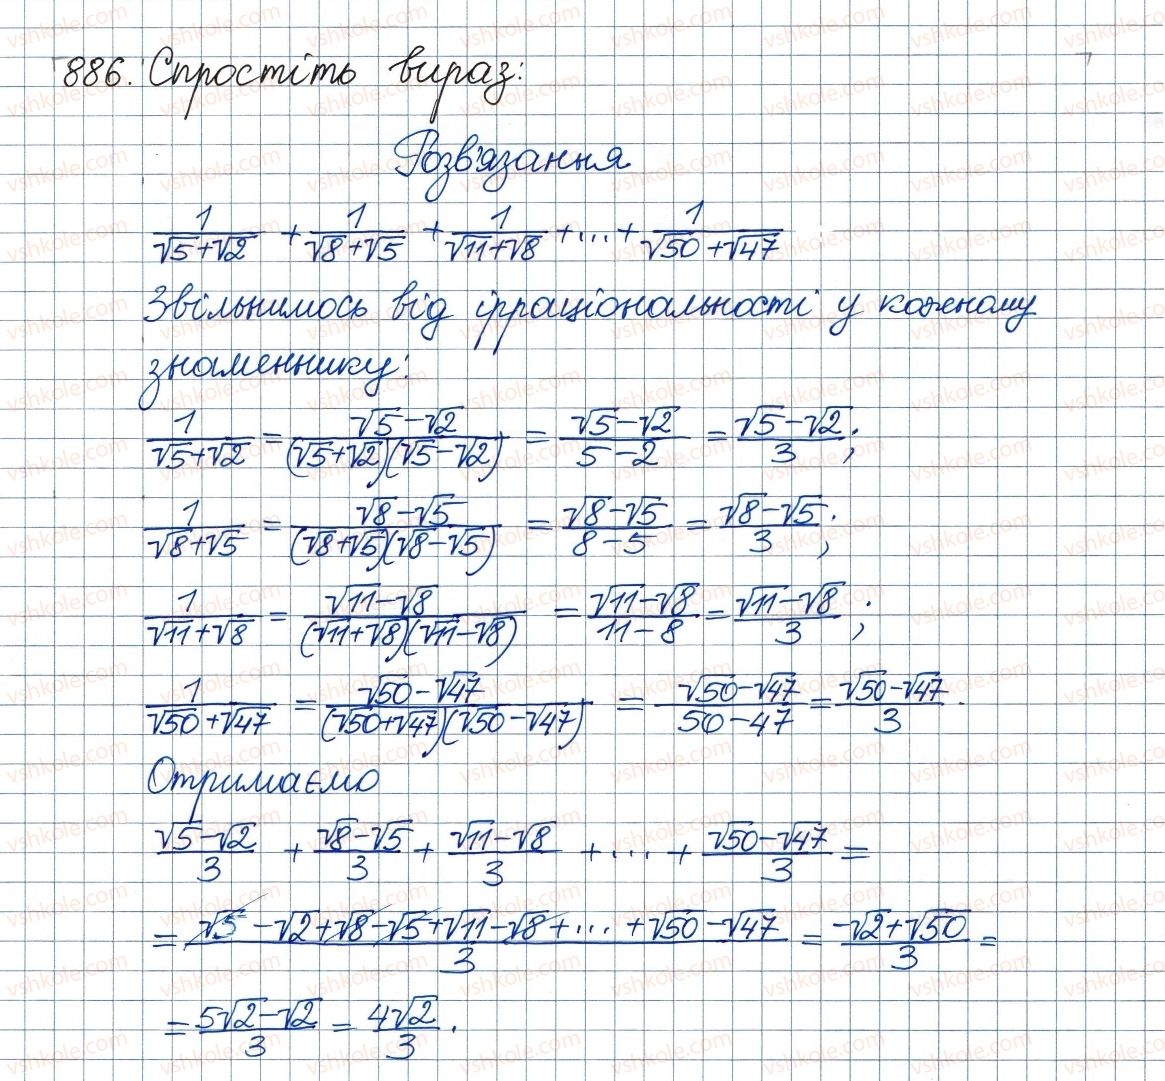 886. Спростіть вираз:
Розв'язання
1/(√5+√2) + 1/(√8+√5) + 1/(√11+√8) + ... + 1/(√50+√47)
Звільнимось від ірраціональності у кожному
знаменнику:
1/(√5+√2) = (√5-√2)/((√5+√2)(√5-√2)) = (√5-√2)/(5-2) = (√5-√2)/3;
1/(√8+√5) = (√8-√5)/((√8+√5)(√8-√5)) = (√8-√5)/(8-5) = (√8-√5)/3;
1/(√11+√8) = (√11-√8)/((√11+√8)(√11-√8)) = (√11-√8)/(11-8) = (√11-√8)/3;
1/(√50+√47) = (√50-√47)/((√50+√47)(√50-√47)) = (√50-√47)/(50-47) = (√50-√47)/3.
Отримаємо
(√5-√2)/3 + (√8-√5)/3 + (√11-√8)/3 + ... + (√50-√47)/3 =
= (√5-√2+√8-√5+√11-√8+...+√50-√47)/3 = (-√2+√50)/3 =
= (5√2-√2)/3 = 4√2/3.
vshkole.com